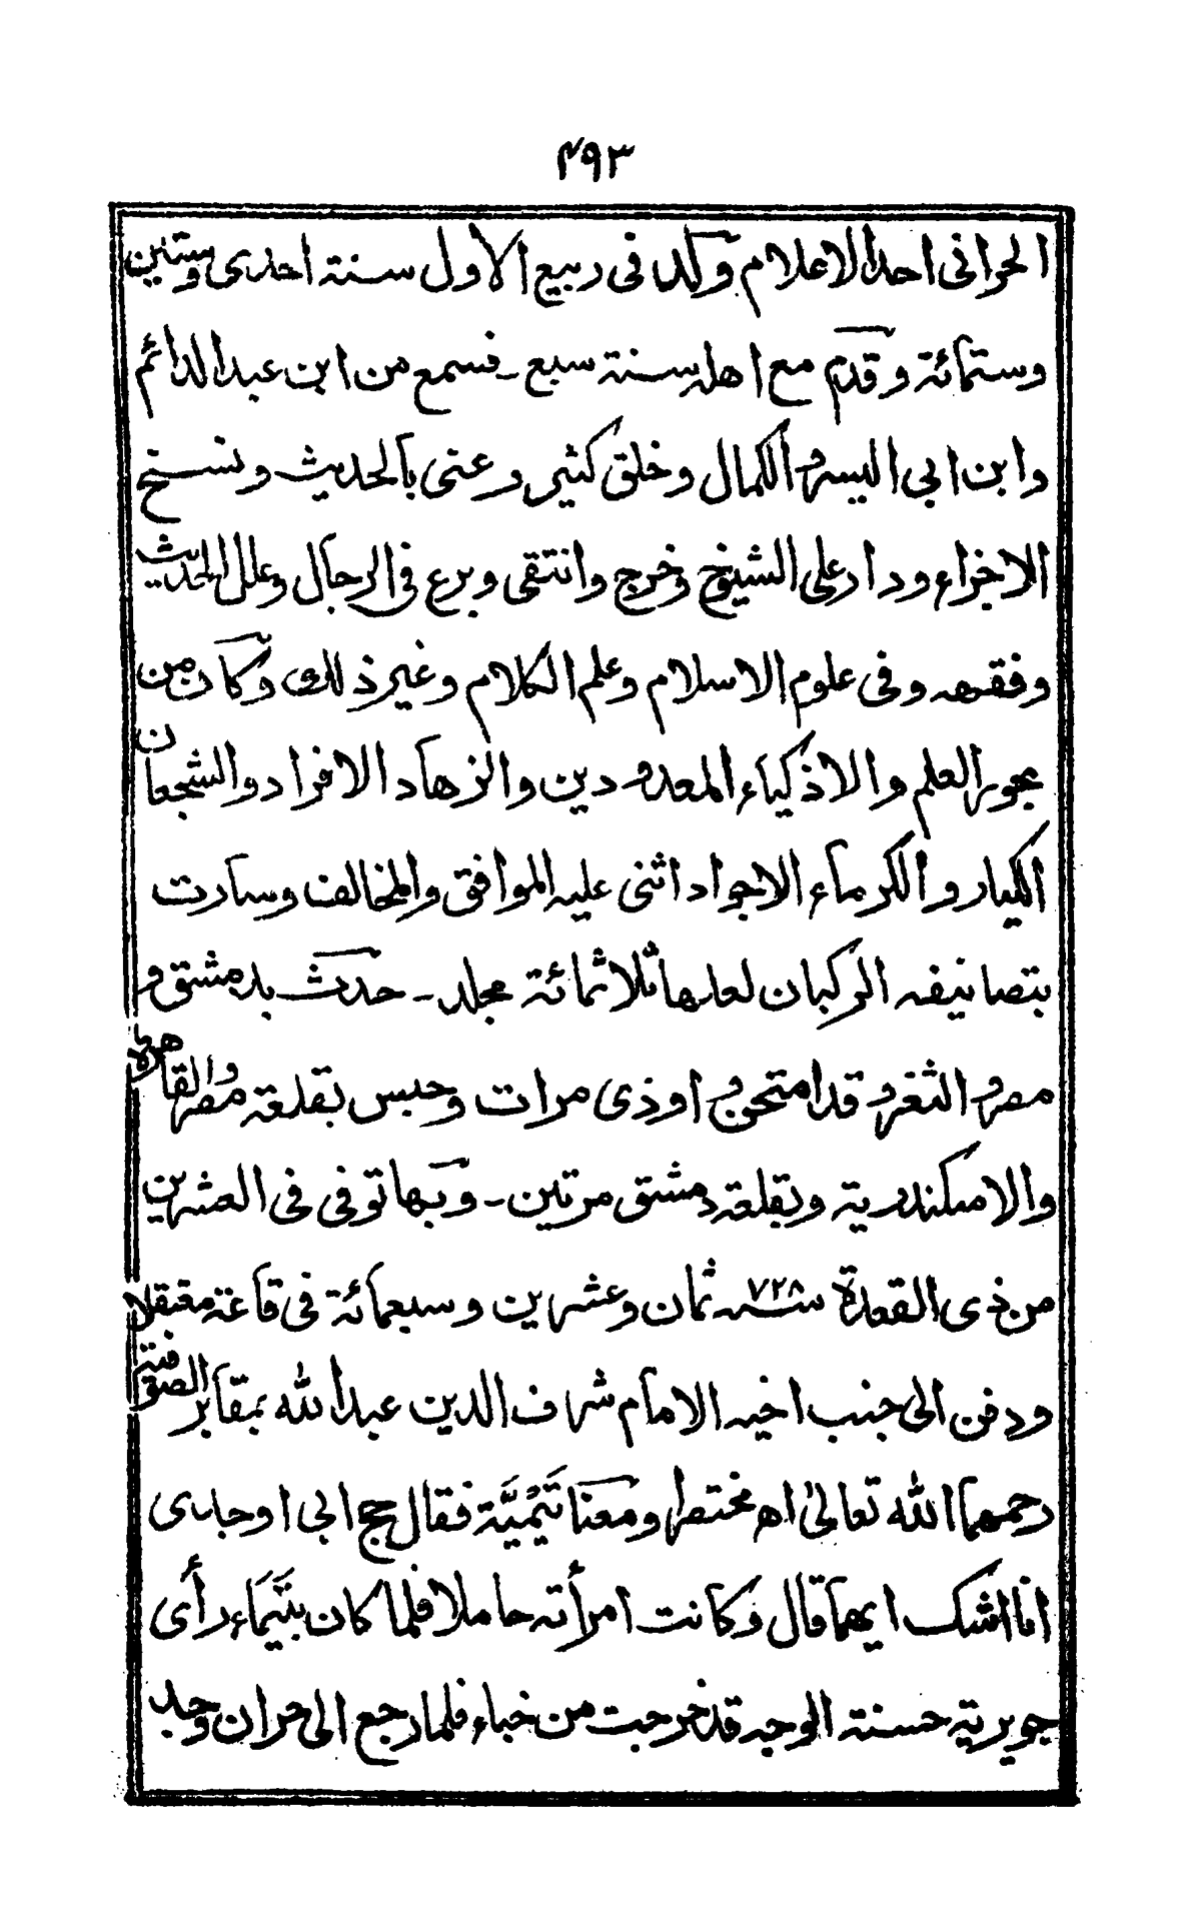 ۴۹۳
الحرانی احد الاعلام وَلد فی ربیع الاول سنة احدی وستین
وستمائة وقدم مع اهله سنة سبع ـ فسمع من ابن عبد الدائم
وابن ابی الیسر والکمال وخلق کثیر وعنی بالحدیث ونسخ
الاجزاء ودار علی الشیوخ وخرج وانتقی وبرع فی الرجال وعلل الحدیث
وفقهه وفی علوم الاسلام وعلم الکلام وغیر ذلك وکان من
بحور العلم والاذکیاء المعدودین والزهاد الافراد والشجعان
الکبار والکرماء الاجواد اثنی علیه الموافق والمخالف وسارت
بتصانیفه الرکبان لعلها ثلاثمائة مجلد ـ حدث بدمشق و
مصر والثغر وقد امتحن واوذی مرات وحبس بقلعة مصر والقاهرة
والاسکندریة وبقلعة دمشق مرتین ـ وبها توفی فی العشرین
من ذی القعدة سنه ۷۲۸ ثمان وعشرین وسبعمائة فی قاعة معتقلا
ودفن الی جنب اخیه الامام شرف الدین عبد الله بمقابر الصوفیة
رحمهما الله تعالیٰ اھ مختصرا ومعنا تَیْمِیَّة فقال حج ابی او جدی
انا اشك ایهما قال وکانت امرأته حاملا فلما کان بتَیْمَاء رأی
جویریة حسنة الوجه قد خرجت من خباء فلما رجع الی حران وجد